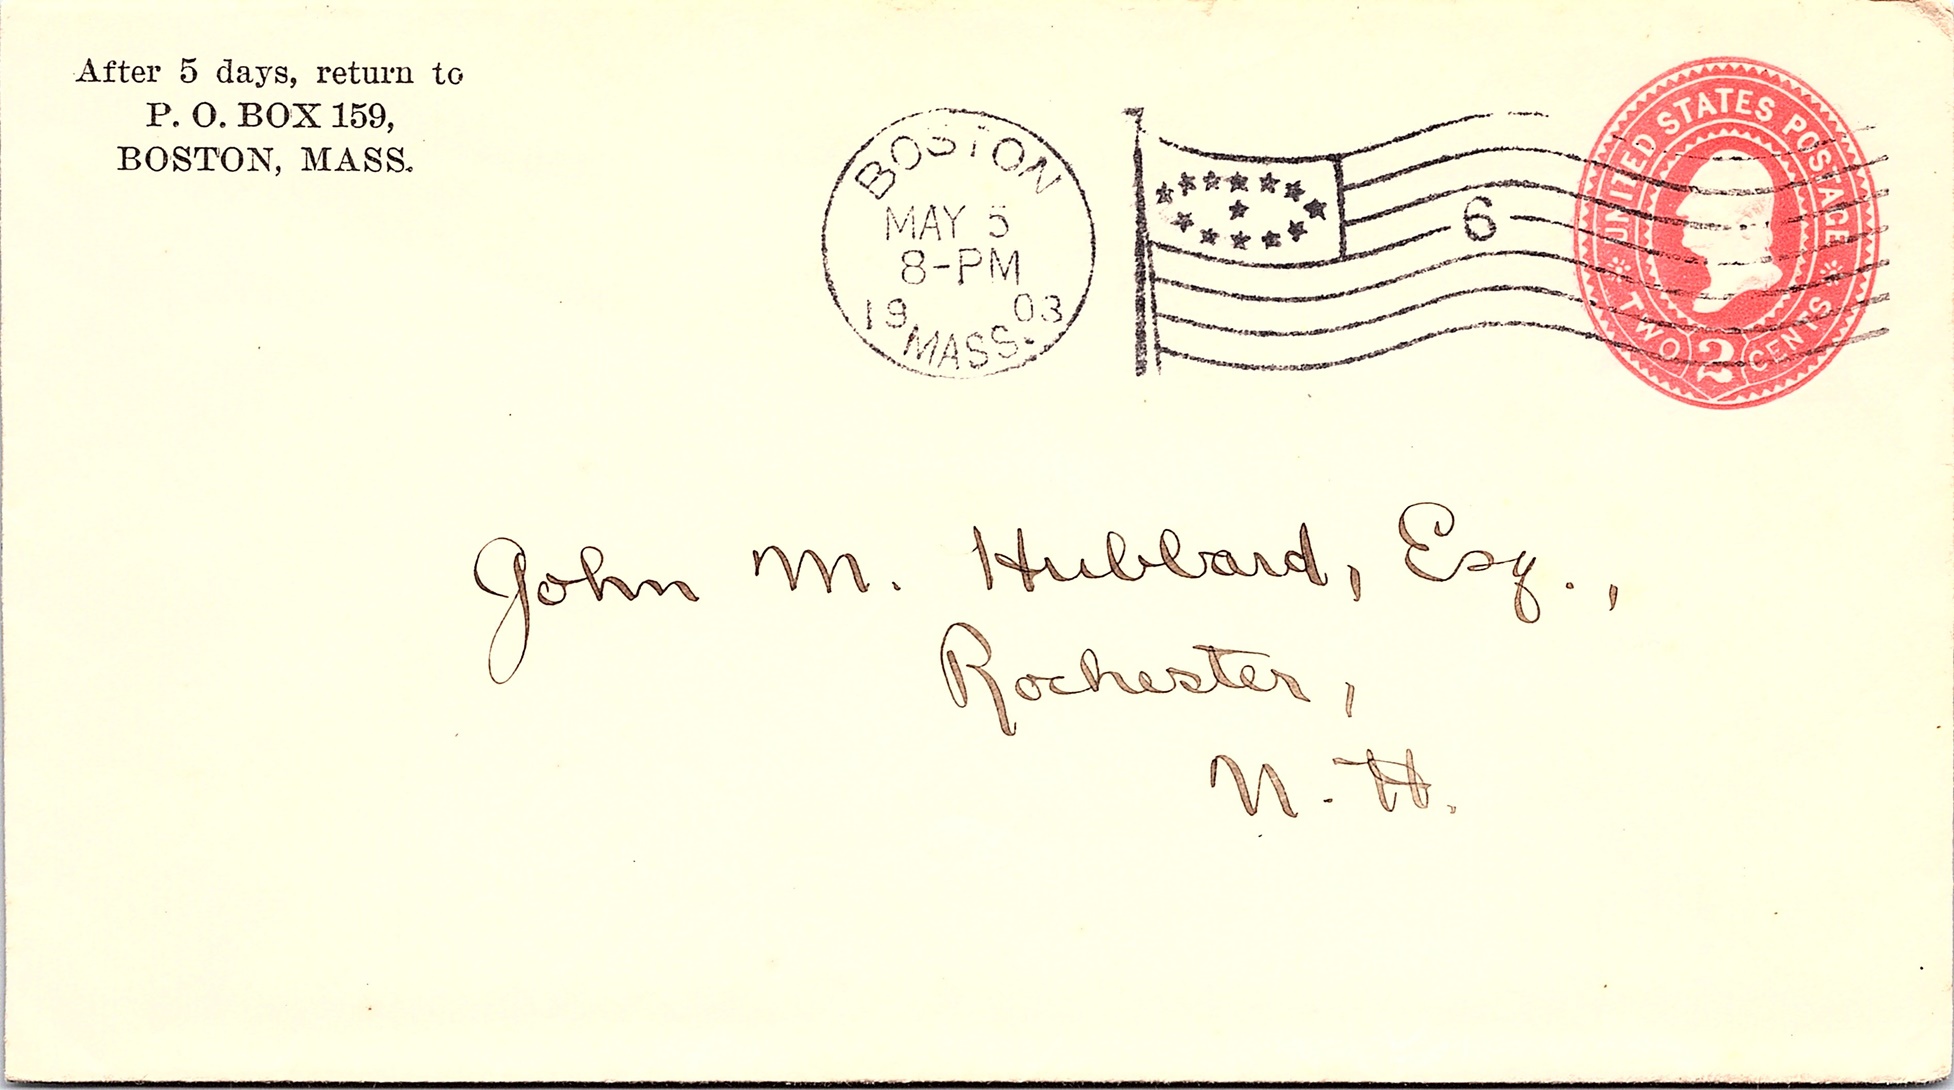 After 5 days, return to
P. O. BOX 159,
BOSTON, MASS.
BOSTON
MAY 5
8-PM
19 03
MASS.
6
UNITED STATES POSTAGE
TWO 2 CENTS
John M. Hubbard, Esq.,
Rochester,
N. H.